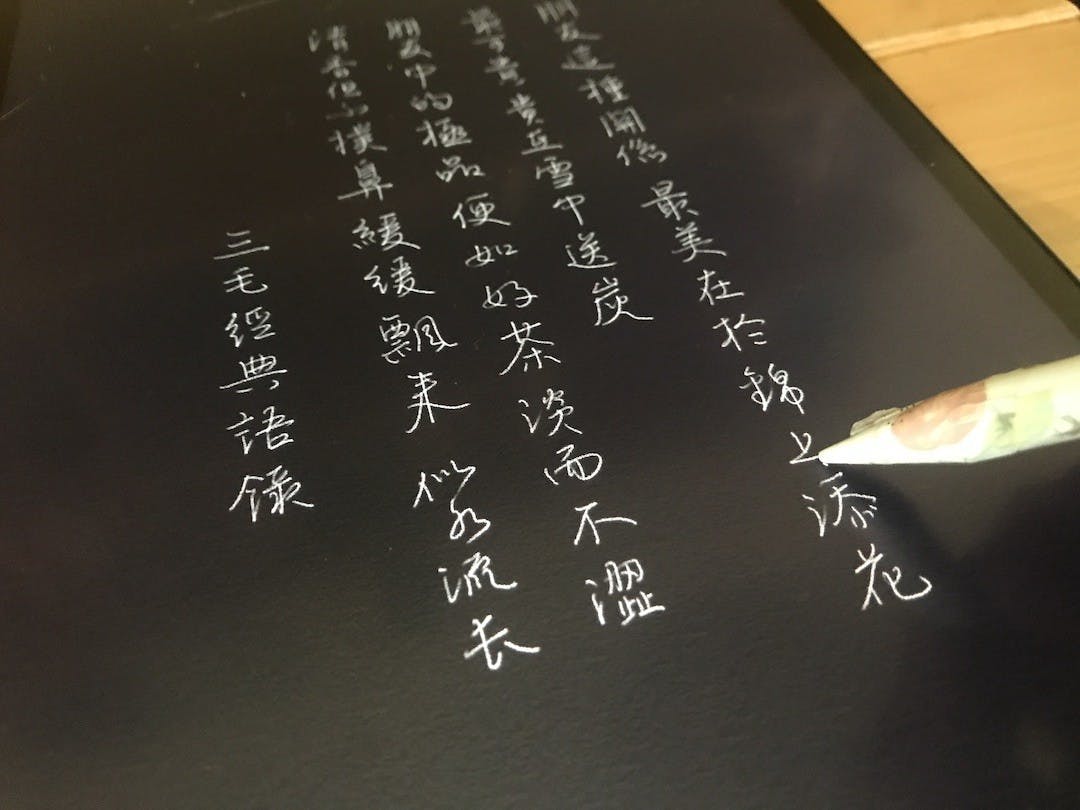 朋友這種関係 最美在於錦上添花
最可貴貴在雪中送炭
朋友中的極品便如好茶淡而不澀
清香但不撲鼻緩緩飄来 似水流长
三毛經典語錄